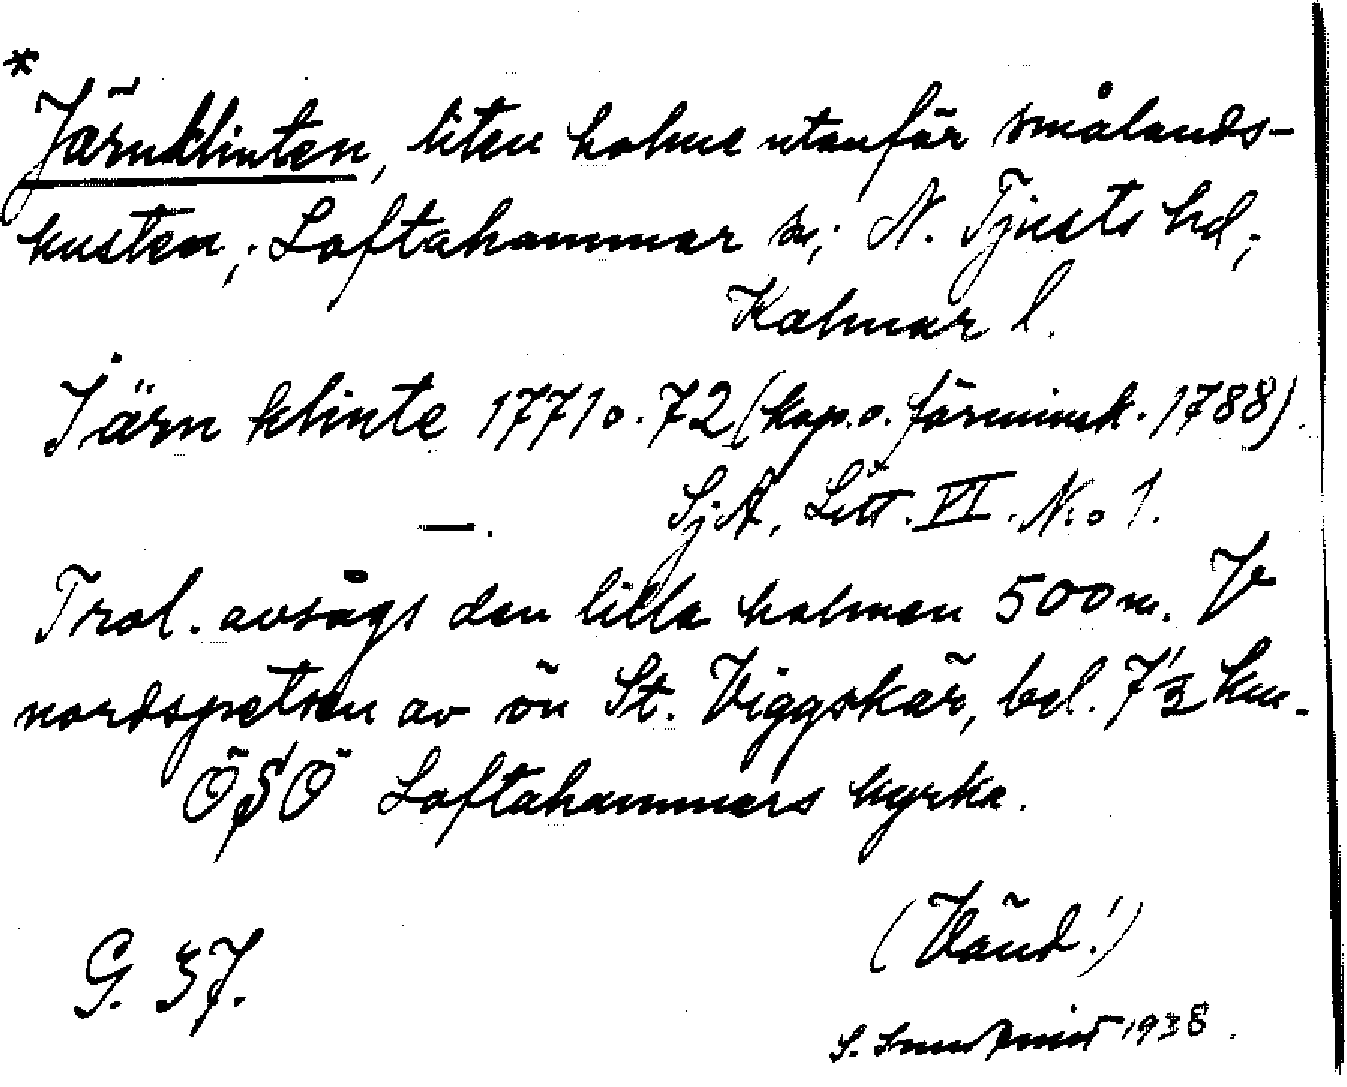 *
Järnklinten, liten holme utanför smålands-
kusten; Loftahammar sn; N. Tjusts hd;
Kalmar l.
Järn klinte 1771 o. 72 (kop. o. förminsk. 1788).
—. SjA, Litt. VI. N:o 1.
Trol. avsågs den lilla holmen 500 m. V
nordspetsen av ön St. Viggskär, bel. 7½ km.
ÖSÖ Loftahammars kyrka.
(Vänd!)
G. 37.
S. 1938.